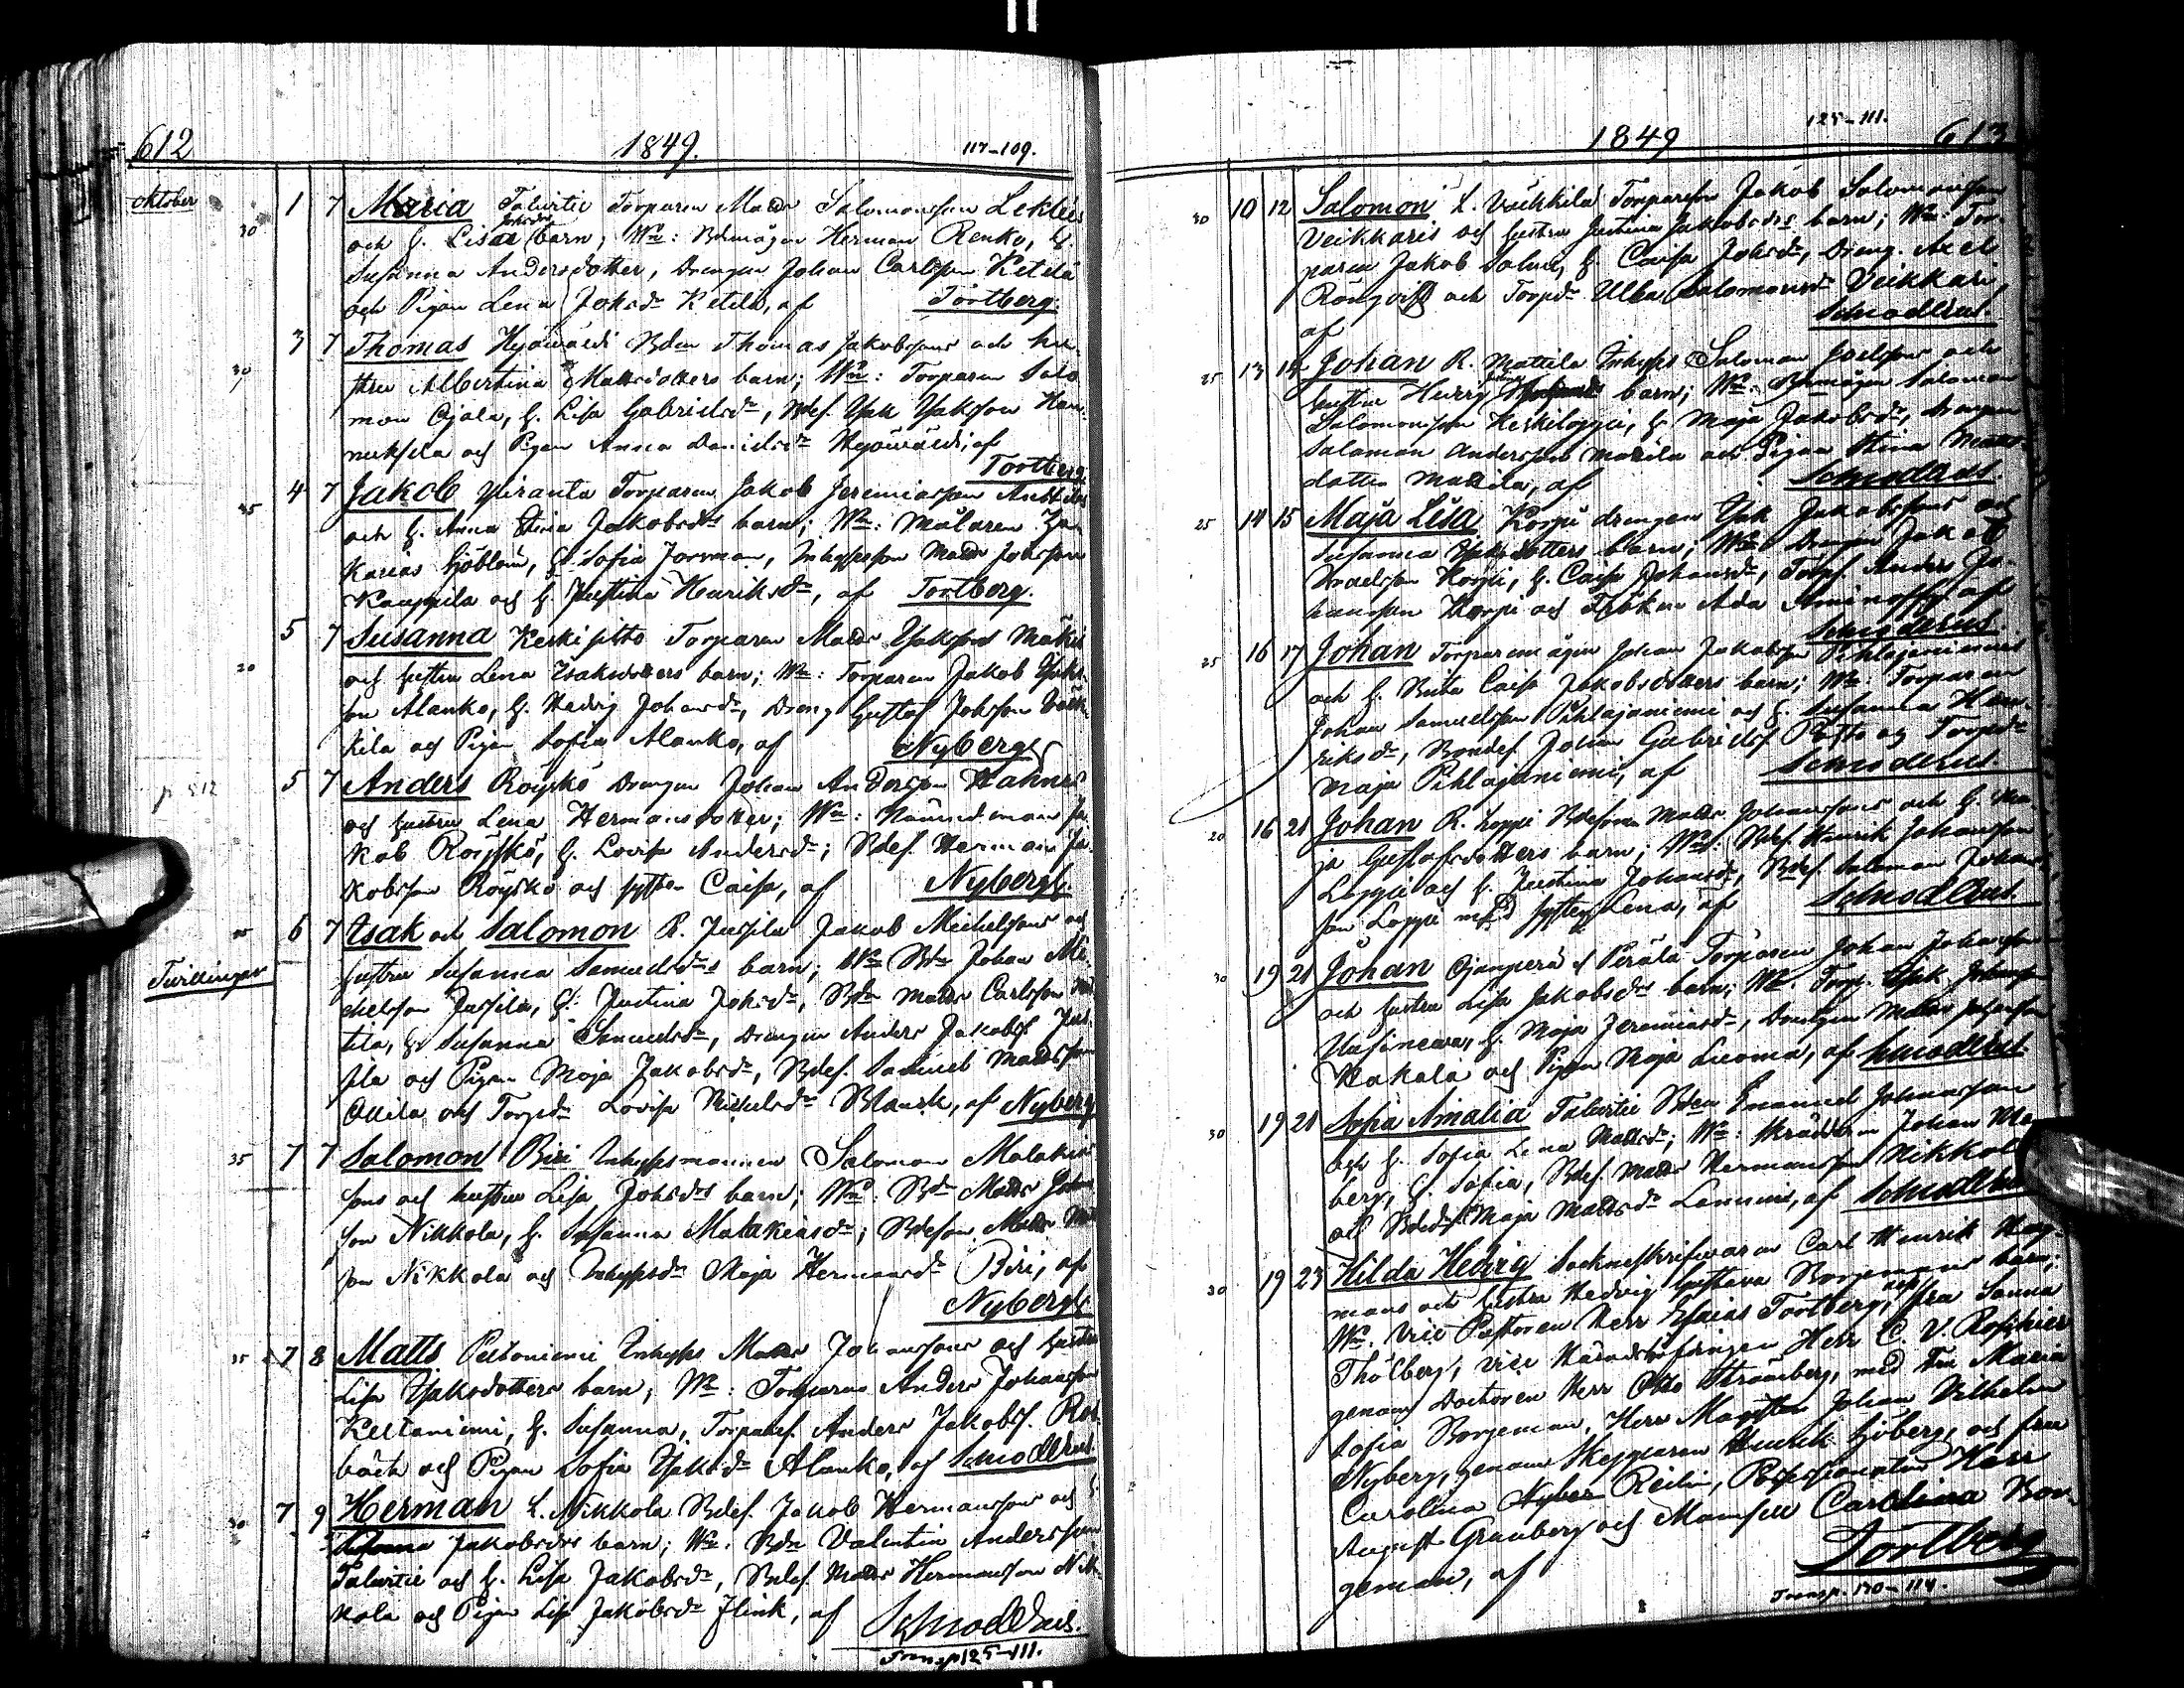 612 1849. 117-109.
Oktober 30 1 7 Maria Talvitie Torparen Matts Salomonsson
och H. Lisa Johsdrs barn; Wn: Bdemågen Herman Renko, H.
Susanna Andersdotter, Drengen Johan Carlsson Ketola
och Pigan Lena Johsdr Ketola, af Tortberg.
30 3 7 Thomas Hyöväldi Bdn Thomas Jakobssons och hu-
stru Albertina Mattsdotters barn; Wn: Torparen Salo
mon Ojala, H. Lisa Gabrielsdr, Bdes. Isak Isaksson Han
nuksela och Pigan Anna Danielsdr af
Tortberg
35 4 7 Jakob Yliranta Torparen Jakob Jeremiasson
och H. Anna Stina Jakobsdrs barn; Wn: Målaren Za
karias Sjöblom, H. Sofia Jorman, Inhyssson Matts Johsson
Kauppila och H. Justina Henriksdr, af Tortberg.
20 5 7 Susanna Keskisitto Torparen Matts Isakssons Mäkis
och hustru Lena Isaksdotters barn; Wn: Torparen Jakob Isaks-
son Alanko, H. Hedvig Johansdr, Dreng Gustaf Johsson Väch
kilä och Pigan Sofia Alanko, af Nyberg
p 512 5 7 Anders Röyskö Drengen Johan Andersson Hahnes
och hustru Lena Hermansdotter; Wn: Nämndeman Ja-
kob Röyskö, H. Lovisa Andersdr; Bdes. Herman Ja-
kobsson Röyskö och syster Caisa, af Nyberg.
6 7 Isak och Salomon R. Jussila Jakob Michelssons och
Tvillingar hustru Susanna Samuelsdrs barn; Wn Bdn Johan Mi-
chelsson Jussila, H: Justina Johsdr, Bdn Matts Carlsson
tila, H. Susanna Samuelsdr, Drengen Anders Jakobss. Jus
sila och Pigan Maja Jakobsdr, Bdes. Samuel Mattsson
Ollila och Torpdr Lovisa Michelsdr af Nyberg
35 7 7 Salomon Biri Inhysesmannen Salomon Malakias
sons och hustru Lisa Johsdrs barn; Wn: Bdn Matts Johns
son Nikkola, H. Susanna Malakiasdr; Bdeson Matts
son Nikkola och Inhysdr Maja Hermansdr Biri, af
Nyberg
35 7 8 Matts Peltoniemi Inhyss Matts Johanssons och hustru
Lisa Isaksdotters barn; Wn: Torparen Anders Johansson
Keltaniemi, H. Susanna, Torpares. Anders Jakobss.
bäck och Pigan Sofia Isaksdr Alanko, af Schrodérus.
30 7 9 Herman L. Nikkola Bdes. Jakob Hermanssons och H
Jakobsdrs barn; Wn: Bdn Valentin Andersson
Talvitie och H. Lisa Jakobsdr, Bdes. Matts Hermansson Nik
kola och Pigan Lisa Jakobsdr Flink, af Schrodérus.
Transp 125-111.
1849 125-111. 613
30 10 12 Salomon L. Väckkilä Torpareson Jakob Salomonsson
Veikkaris och hustru Justina Jakobsdrs barn; Wn: Tor-
paren Jakob H. Caisa Johsdr, Dreng. Axel
Rönqvist och Torpdr Ulla Salomonsdr Veikkari,
af Schrodérus.
25 13 14 Johan R. Mattila Inhyss Salomon Joelssons och
hustru barn; Wn: Bdemågen Salomon
Salomonsson Keskiloppi, H. Maja Jakobsdr, drengen
Salomon Andersson Mattila och Pigan Stina Matts-
dotter Mattila, af Schrodérus.
25 14 15 Maja Lisa Korpi drengen Isak Jakobssons och
Susanna Isaksdotters barn; Wn: Drengen Jakob
Israelsson Korpi, H. Caisa Johansdr, Torps. Anders Jo-
hansson Korpi och Fröken Ada Aminoff af
Schrodérus.
25 16 17 Johan Torparemågen Johan Jakobsson Pihlajaniemis
och H. Brita Caisa Jakobsdotters barn; Wn: Torparen
Johan Samuelsson Pihlajaniemi och H. Susanna Hen-
riksdr, Bondes. Johan Gabrielss och Torpdr
Maja Pihlajaniemi, af Schrodérus.
20 16 21 Johan R. Loppi Bdesonen Matts Johanssons och H. Ma-
ja Gustafsdotters barn; Wn: Bdes. Henrik Johansson
Loppi och H. Justina Johansdr, Bdes. Salomon Johans
son Loppi med syster Lena, af Schrodérus.
30 19 21 Johan Ojanperä l. Perälä Torparen Johan Johansson
och hustru Lisa Jakobsdrs barn; Wn: Torp. Isak Johansson
H. Maja Jeremiasdr, Drengen Matts Johansson
Hakala och Pigan Maja Luoma, af Schrodérus.
30 19 21 Sofia Amalia Talvitie Bden Emanuel Johansson
och H. Sofia Lena Mattsdr; Wn: Skräddaren Johan
berg, H. Sofia, Bdes. Matts Hermansson Nikkola
och Bdedr Maja Mattsdr af Schrodérus
30 19 23 Hilda Hedvig Socknskrifvaren Carl Henrik
mans och hustru Hedvig Gustava Borgemans barn;
Wn. Vice Pastoren Herr Esaias Tortberg, och fru Sanna
Thölberg, Vice Häradshöfdingen Herr C. V. Roschier
genom Doctoren Herr Otto Strömberg, med fru Maria
Sofia Borgeman, Herr Magister Johan Vilhelm
Nyberg, genom Skepparen Henrik Sjöberg, och fru
Carolina Reilin, Possessionaten Herr
August Granberg och Mamsell Carolina Bor-
geman, af Tortberg
Transp. 130-114.